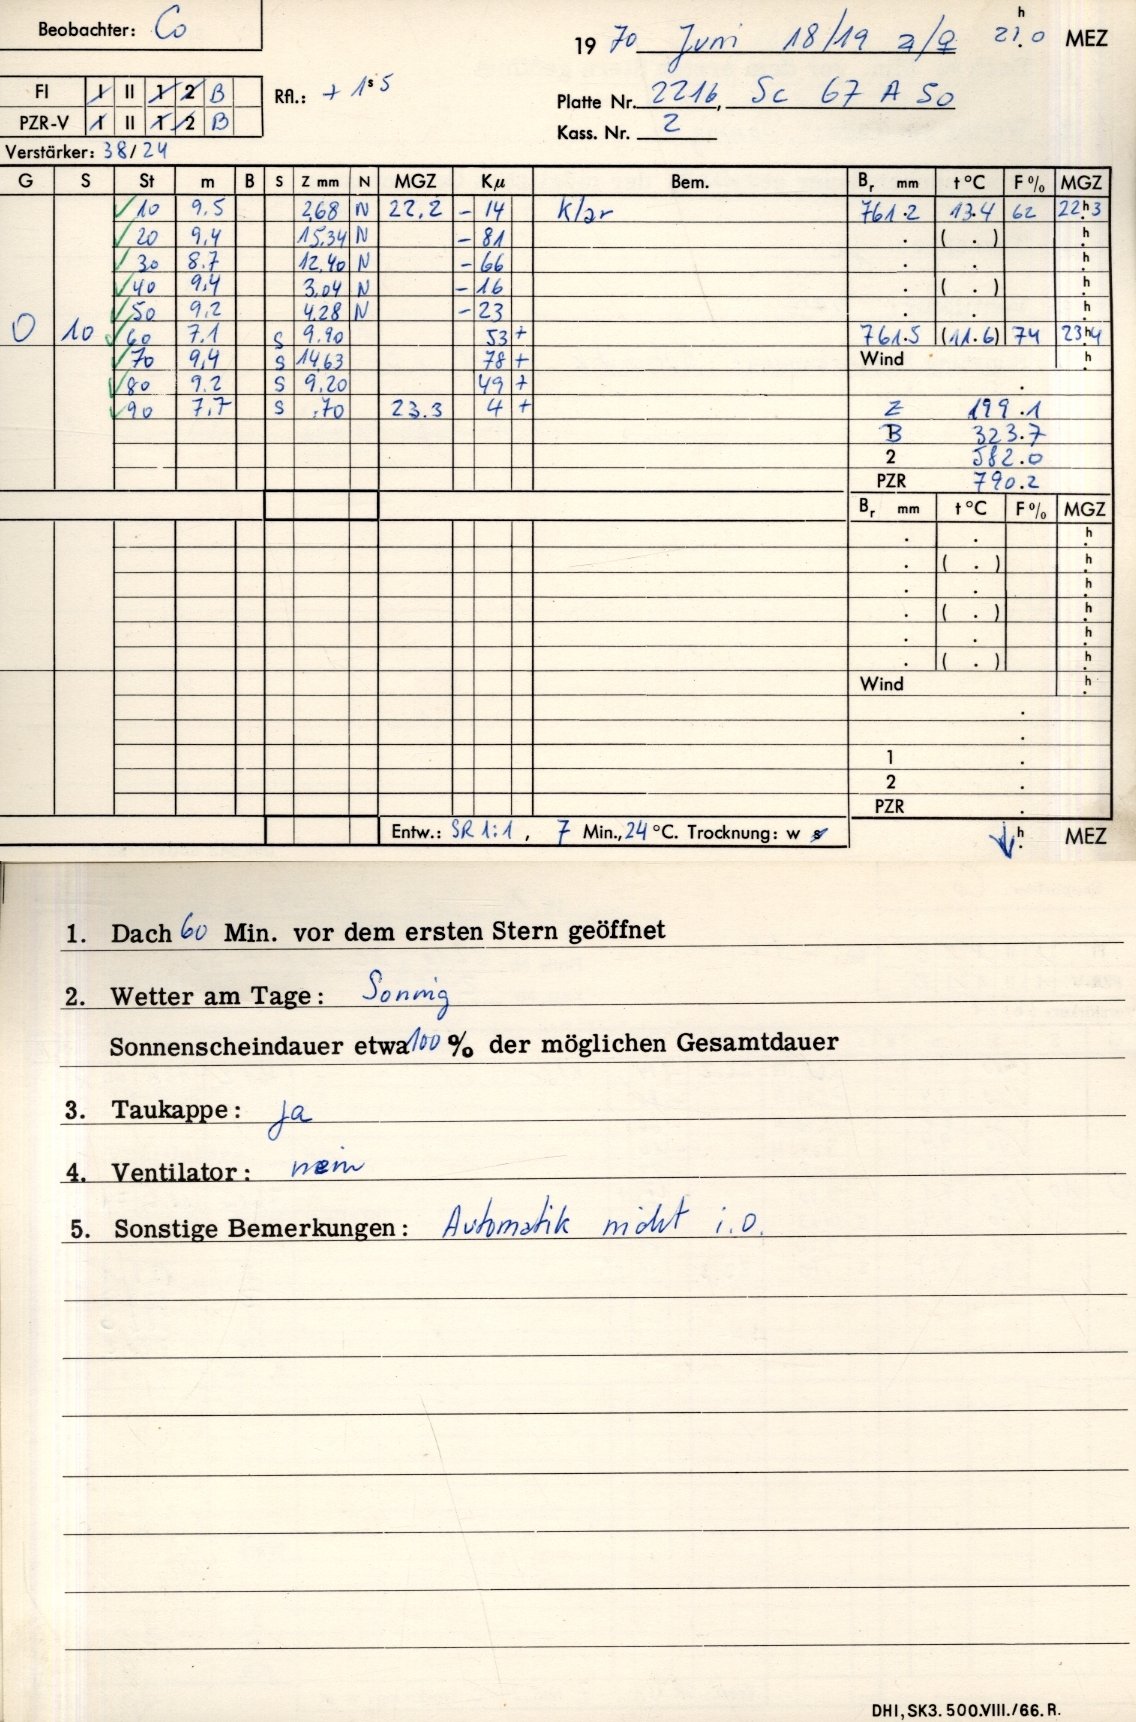 Beobachter: Co
1970 Juni 18/19 21.0 h MEZ
FI I II 1 2 B
Rfl.: + 1s5
Platte Nr. 2216, Sc 67 A 50
PZR-V I II 1 2 B
Kass. Nr. 2
Verstärker: 38/24
G S St m B S Z mm N MGZ Kμ Bem. Br mm t°C F% MGZ
10 9.5 2.68 N 22.2 - 14 klar 761.2 13.4 62 22h3
20 9.4 15.34 N - 81 . ( . ) h
30 8.7 12.40 N - 66 . . h
40 9.4 3.04 N - 16 . ( . ) h
50 9.2 4.28 N - 23 . . h
0 10 60 7.1 S 9.90 53 + 761.5 (11.6) 74 23h4
70 9.4 S 14.63 78 + Wind h
80 9.2 S 9.20 49 + .
90 7.7 S .70 23.3 4 + Z 199.1
B 323.7
2 582.0
PZR 790.2
Br mm t°C F% MGZ
. . h
. ( . ) h
. . h
. ( . ) h
. . h
. ( . ) h
Wind h
.
.
1 .
2 .
PZR .
Entw.: SR 1:1, 7 Min., 24 °C. Trocknung: w s
h MEZ
1. Dach 60 Min. vor dem ersten Stern geöffnet
2. Wetter am Tage: Sonnig
Sonnenscheindauer etwa 100 % der möglichen Gesamtdauer
3. Taukappe: ja
4. Ventilator: nein
5. Sonstige Bemerkungen: Automatik nicht i.O.
DHI, SK3. 500.VIII./66. R.